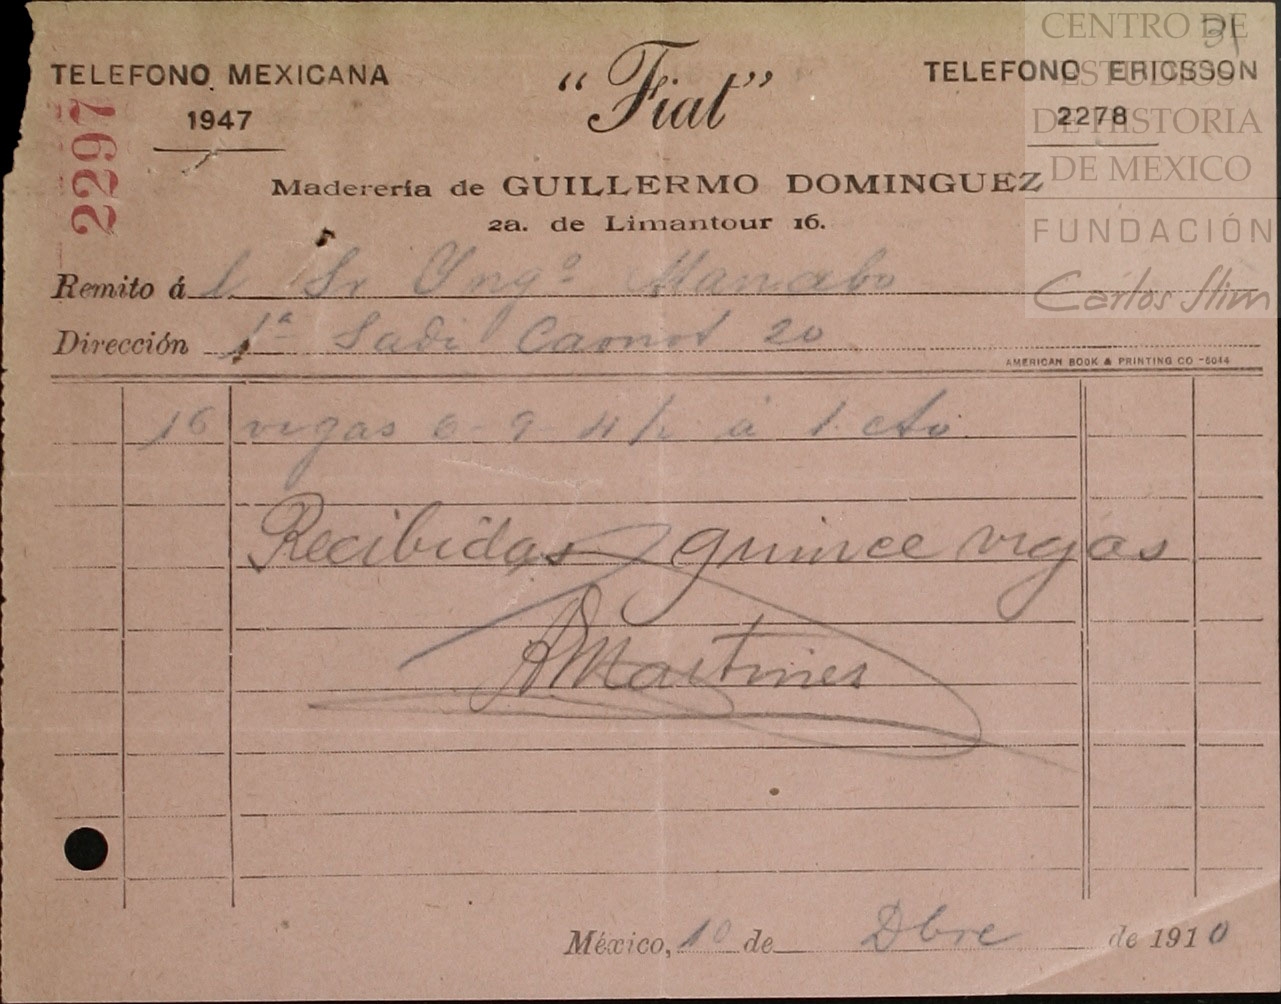 CENTRO DE
ESTUDIOS
DE HISTORIA
DE MEXICO
FUNDACIÓN
Carlos Slim
31
TELEFONO MEXICANA
1947
"Fiat"
TELEFONO ERICSSON
2278
2297
Maderería de GUILLERMO DOMINGUEZ
2a. de Limantour 16.
Remito á l Sr Yngº
Dirección 1ª Sadi Carnot 20
AMERICAN BOOK & PRINTING CO -5044
16 vigas 6-9-4½ á 1. cto
Recibidas quince vigas
A Martines
México, 10 de Dbre de 1910